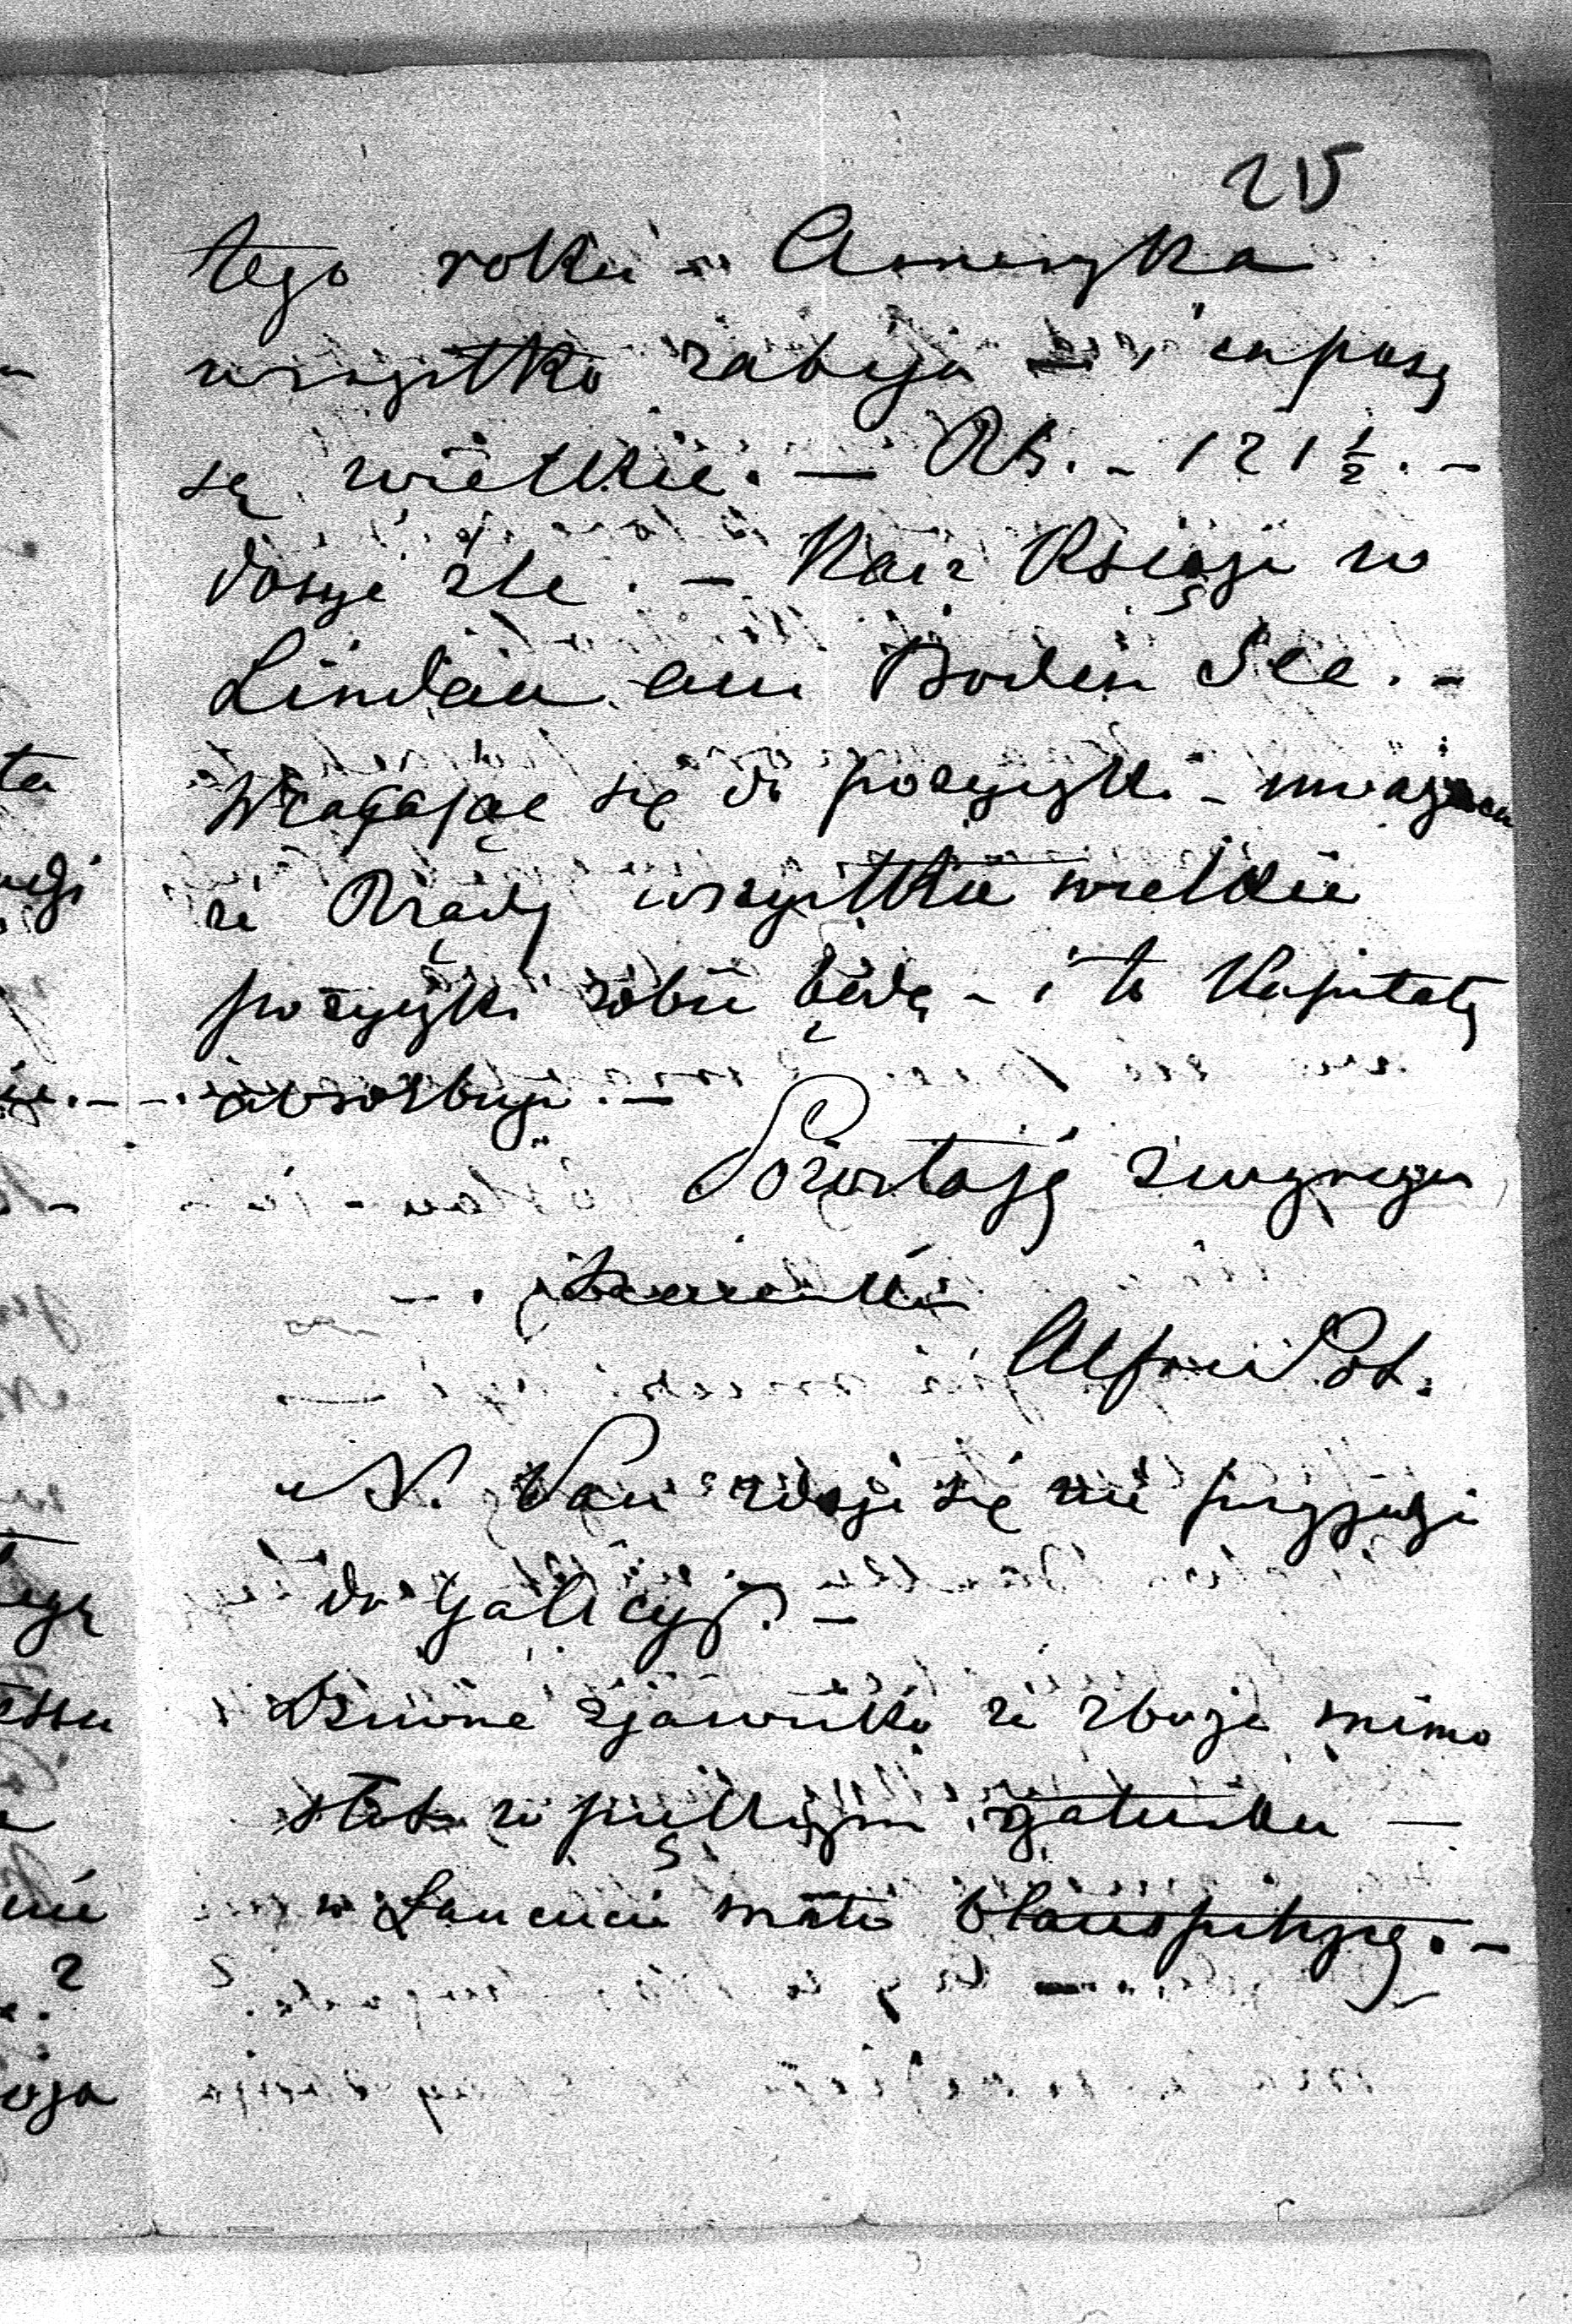 215
tego roku - Ameryka
wszystko zabija i zapasy
są wielkie. — Rb. - 121 1/2. -
dosyć źle. - Nasz Książe w
Lindau am Boden See. -
Wracając się do pożyczki - uważam
że Rządy wszystkie wielkie
pożyczki robić będą - i to Kapitały
absorbuje. -
Pozostaję
Alfred Pot.
N. Pan zdaje się nie przyjedzie
do Galicyi. -
Dziwne zjawisko że zboże mimo
słot w pięknym gatunku —
w Łancucie mało